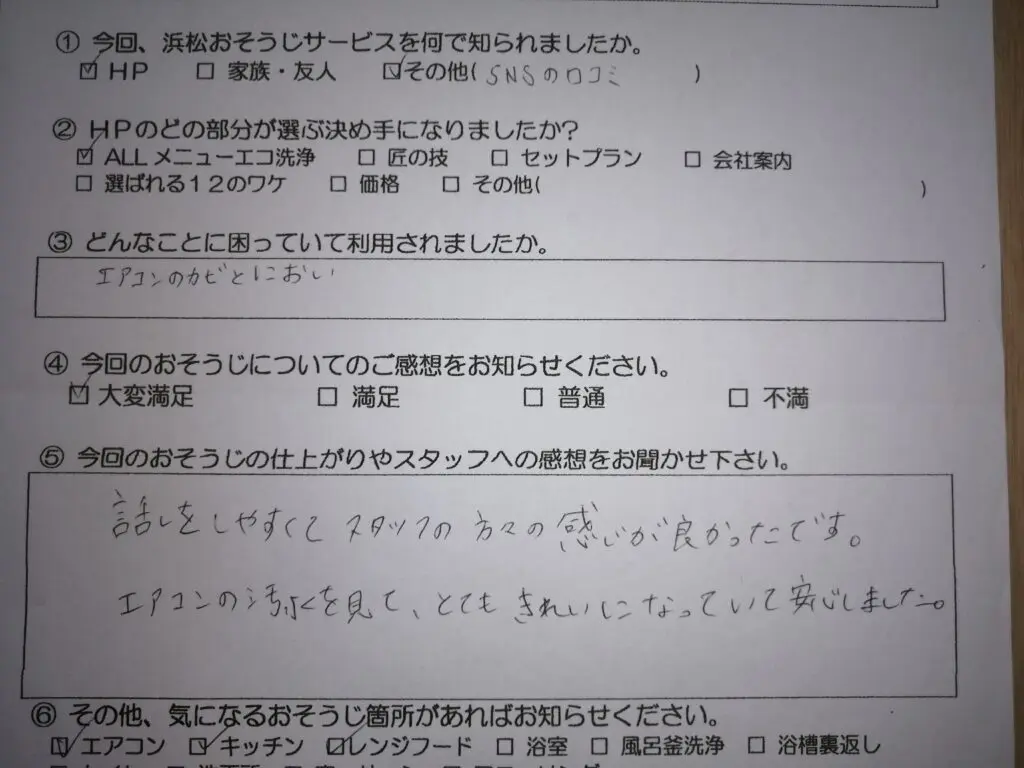 ① 今回、浜松おそうじサービスを何で知られましたか。
☑ HP □ 家族・友人 ☑その他( SNSの口コミ )
② HPのどの部分が選ぶ決め手になりましたか?
☑ ALLメニューエコ洗浄 □ 匠の技 □ セットプラン □ 会社案内
□ 選ばれる12のワケ □ 価格 □ その他( )
③ どんなことに困っていて利用されましたか。
エアコンのカビとにおい
④ 今回のおそうじについてのご感想をお知らせください。
☑ 大変満足 □ 満足 □ 普通 □ 不満
⑤ 今回のおそうじの仕上がりやスタッフへの感想をお聞かせ下さい。
話しをしやすくて スタッフの方々の感じが良かったです。
エアコンの汚水を見て、とてもきれいになっていて安心しました。
⑥ その他、気になるおそうじ箇所があればお知らせください。
☑ エアコン ☑ キッチン ☑レンジフード □ 浴室 □ 風呂釜洗浄 □ 浴槽裏返し